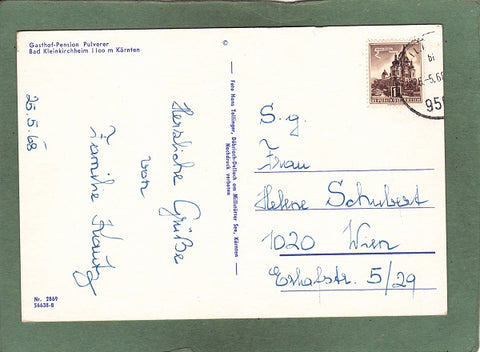 Gasthof-Pension Pulverer
Bad Kleinkirchheim 1100 m Kärnten
25.5.68
Herzliche Grüße
von
Familie
Nr. 2869
S6638-B
©
Foto Hans Teilinger, Döbriach-Dellach am Millstätter See, Kärnten
Nachdruck verboten
S. g.
Frau
Helene Schubert
1020 Wien
5/29
REPUBLIK ÖSTERREICH
-5.68